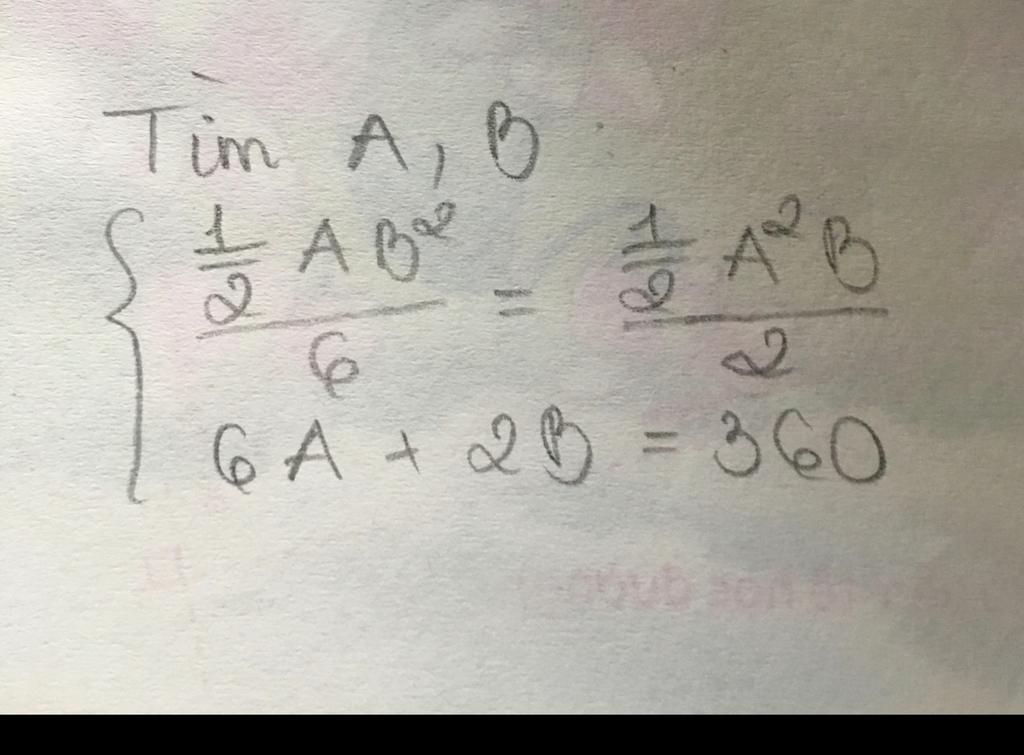 Tìm A, B
{ (1/2 A B²)/6 = (1/2 A² B)/2
6A + 2B = 360